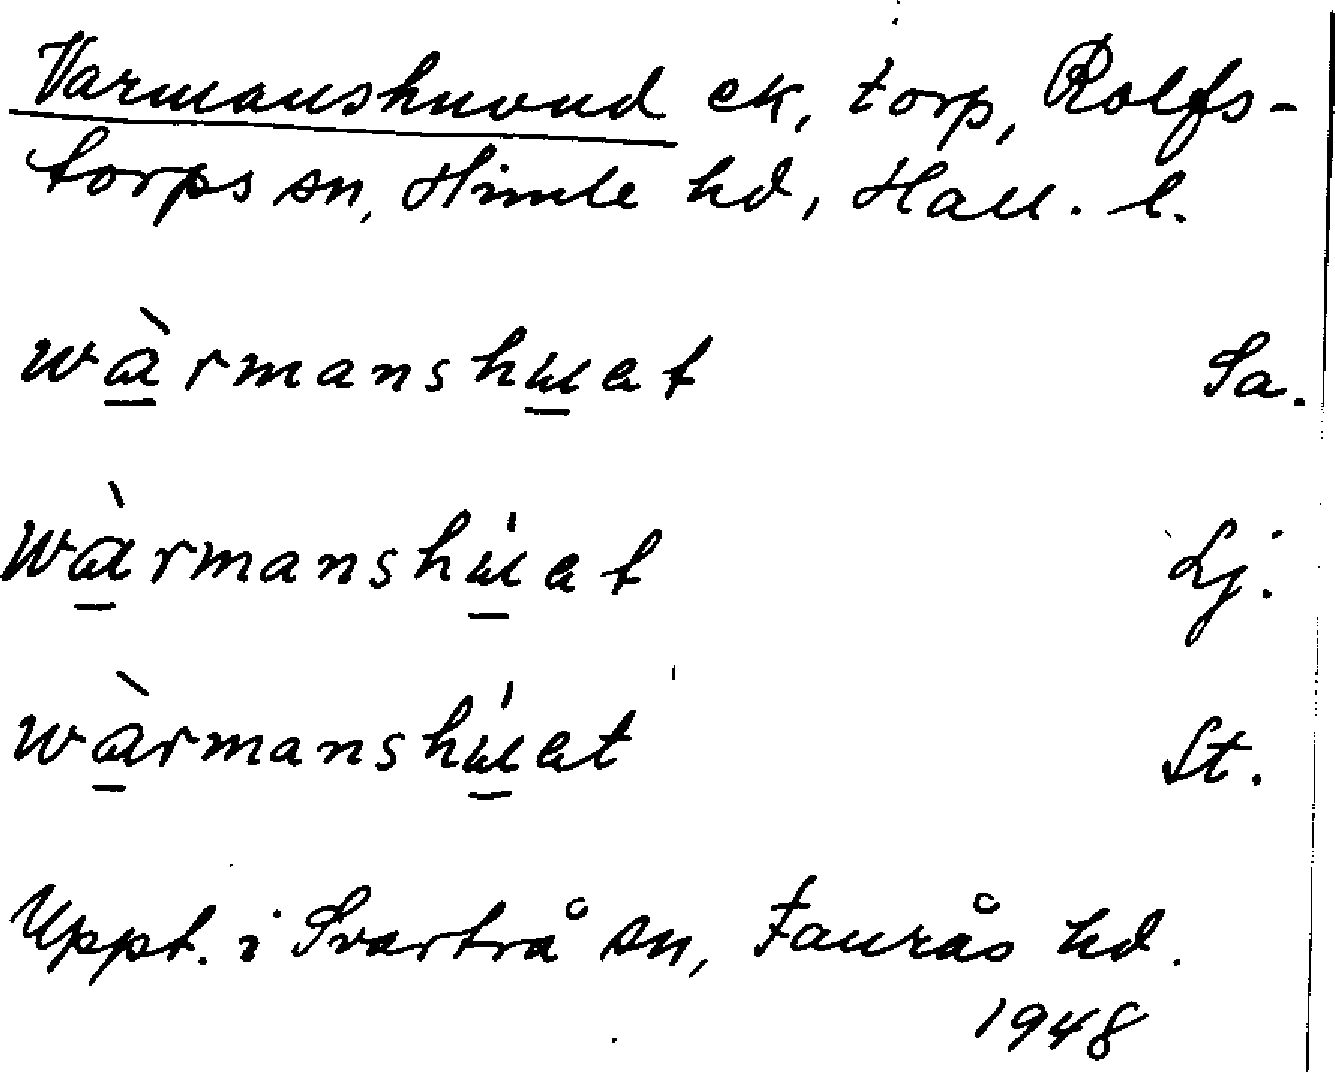 Varmanshuvud ek, torp, Rolfs-
torps sn, Himle hd, Hall. l.
wàrmanshuat Sa.
wàrmanshúat Lj.
wàrmanshúat St.
Uppt. i Svartrå sn, Faurås hd.
1948